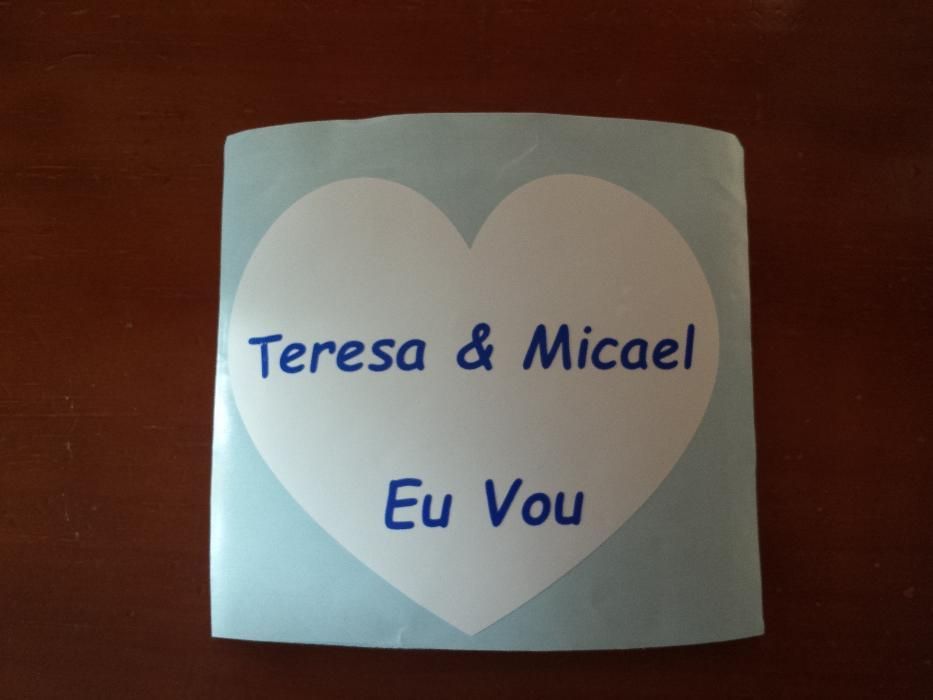 Teresa & Micael
Eu Vou